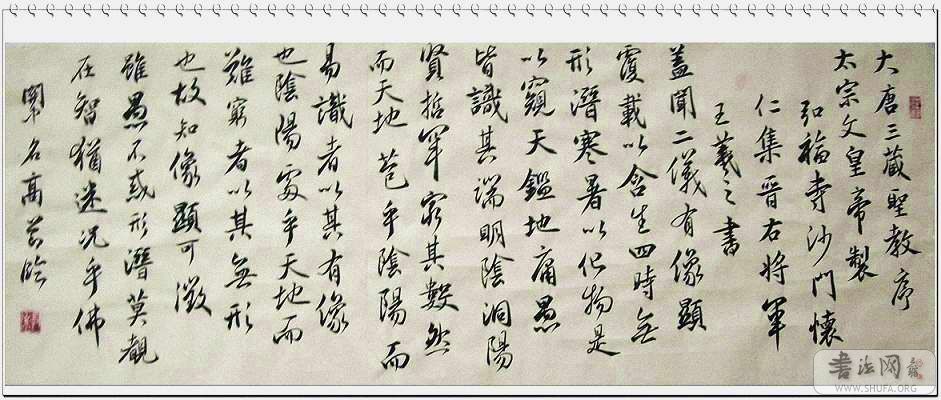 大唐三藏聖教序
太宗文皇帝製
弘福寺沙門懷
仁集晉右將軍
王羲之書
蓋聞二儀有像顯
覆載以含生四時無
形潛寒暑以化物是
以窺天鑑地庸愚
皆識其端明陰洞陽
賢哲罕窮其數然
而天地苞乎陰陽而
易識者以其有像
也陰陽處乎天地而
難窮者以其無形
也故知像顯可徵
雖愚不惑形潛莫覩
在智猶迷況乎佛
名高臨
書法网
WWW.SHUFA.ORG